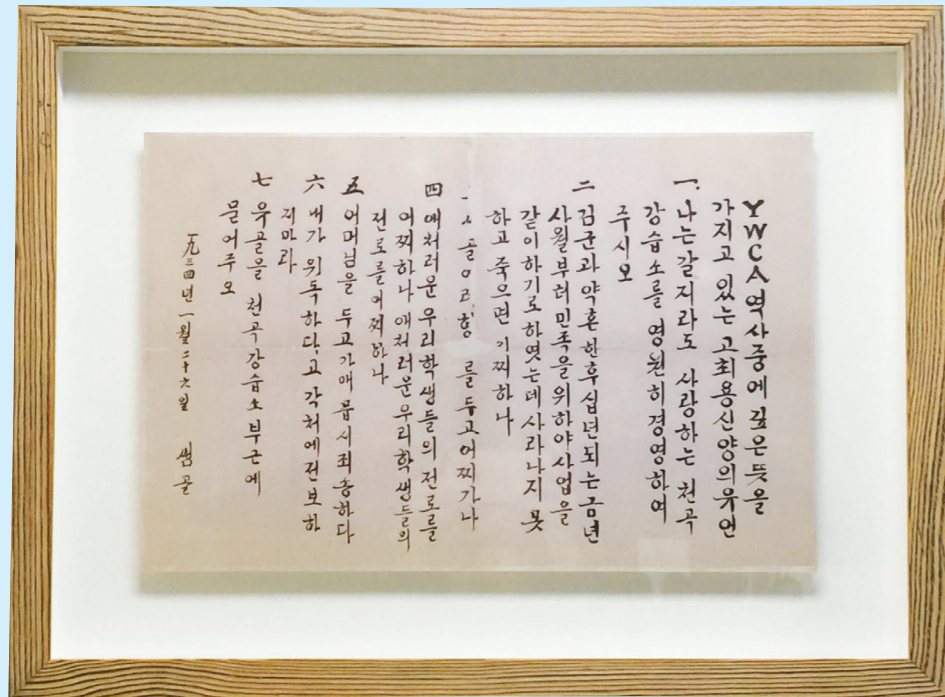 YWCA역사중에 깊은뜻을
가지고 있는 고최용신양의유언
一. 나는갈지라도 사랑하는 천곡
강습소를 영원히경영하여
주시오
二 김군과약혼한후십년되는금년
사월부터민족을위하야사업을
같이하기로하엿는데사라나지 못
하고 죽으면 어찌하나
를두고어찌가나
四 애처러운우리학생들의전로를
어찌하나 애처러운우리학생들의
전로를어찌하나
五 어머님을 두고가매 몹시죄송하다
六 내가 위독하다고 각처에전보하
지마라
七 유골을 천곡강습소부근에
묻어주오
一九三四년 一월 二十六일 샘골